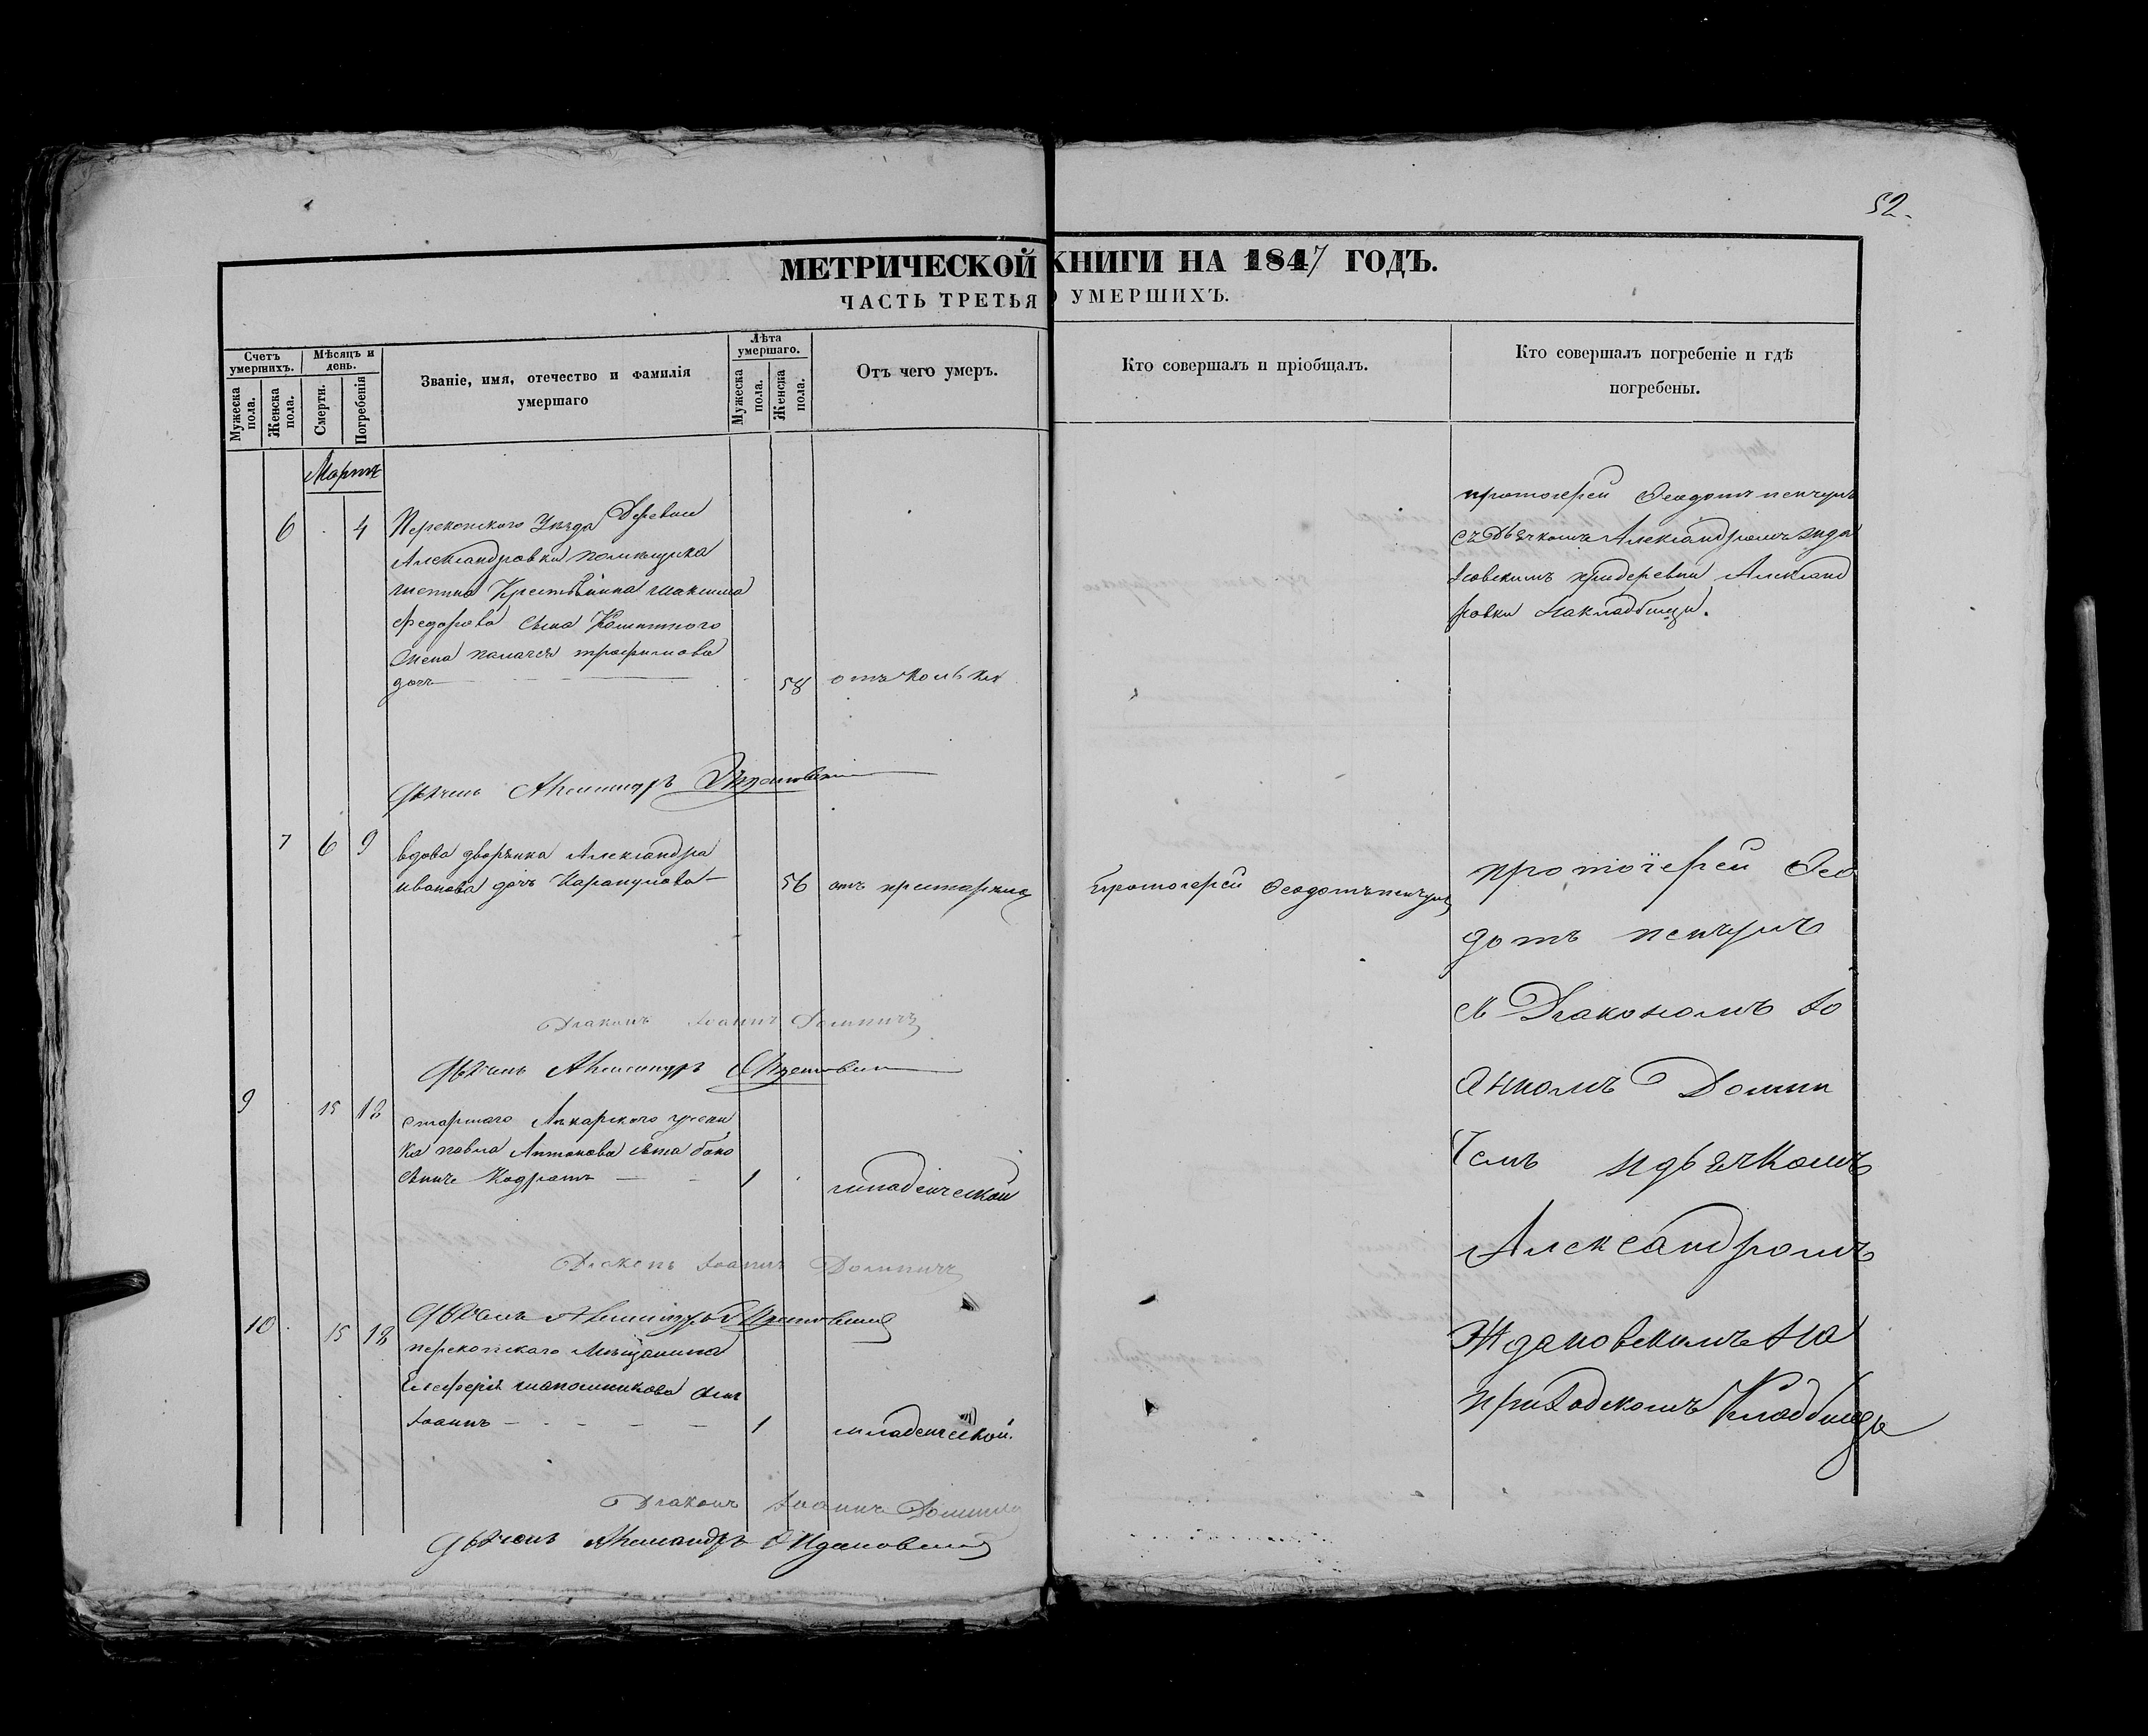 52.
МЕТРИЧЕСКОЙ КНИГИ НА 1847 ГОДЪ.
ЧАСТЬ ТРЕТЬЯ О УМЕРШИХЪ.
Счетъ умершихъ.
Мужеска пола.
Женска пола.
Мѣсяцъ и день.
Смерти.
Погребенія
Званіе, имя, отечество и фамилія умершаго
Лѣта умершаго.
Мужеска пола.
Женска пола.
Отъ чего умеръ.
Кто совершалъ и пріобщалъ.
Кто совершалъ погребеніе и гдѣ
погребены.
Мартъ
6 4 Перекопскаго Уѣзда Деревни
Александровки помѣщика
Крестьянина максима
Федорова сына
Жена трофимова
дочь 58 отъ
протоіерей Феодотъ
съ Дьячкомъ Александромъ жда
новскимъ придеревни Александ
ровки накладбищи.
Дьячекъ Александръ Ждановскій
7 6 9 вдова дворянка Александра
иванова дочь 56 отъ
протоіерей Феодотъ
протоіерей Фео
дотъ
съ Диакономъ Іо
анномъ Долин
чемъ идьячкомъ
Александромъ
Ждановскимъ на
приходскомъ Кладбище
Диаконъ Іоаннъ
Дьячекъ Александръ Ждановскій
9 15 18 старшаго Лѣкарскаго учени
ка павла Антонова сына
Кодратъ 1 младенческой
Диаконъ Іоаннъ
Дьячекъ Александръ Ждановскій
10 15 18 перекопскаго Мещанина
Елеферія шапошникова сынъ
Іоаннъ 1 младенческой.
Диаконъ Іоаннъ
Дьячекъ Александръ Ждановскій